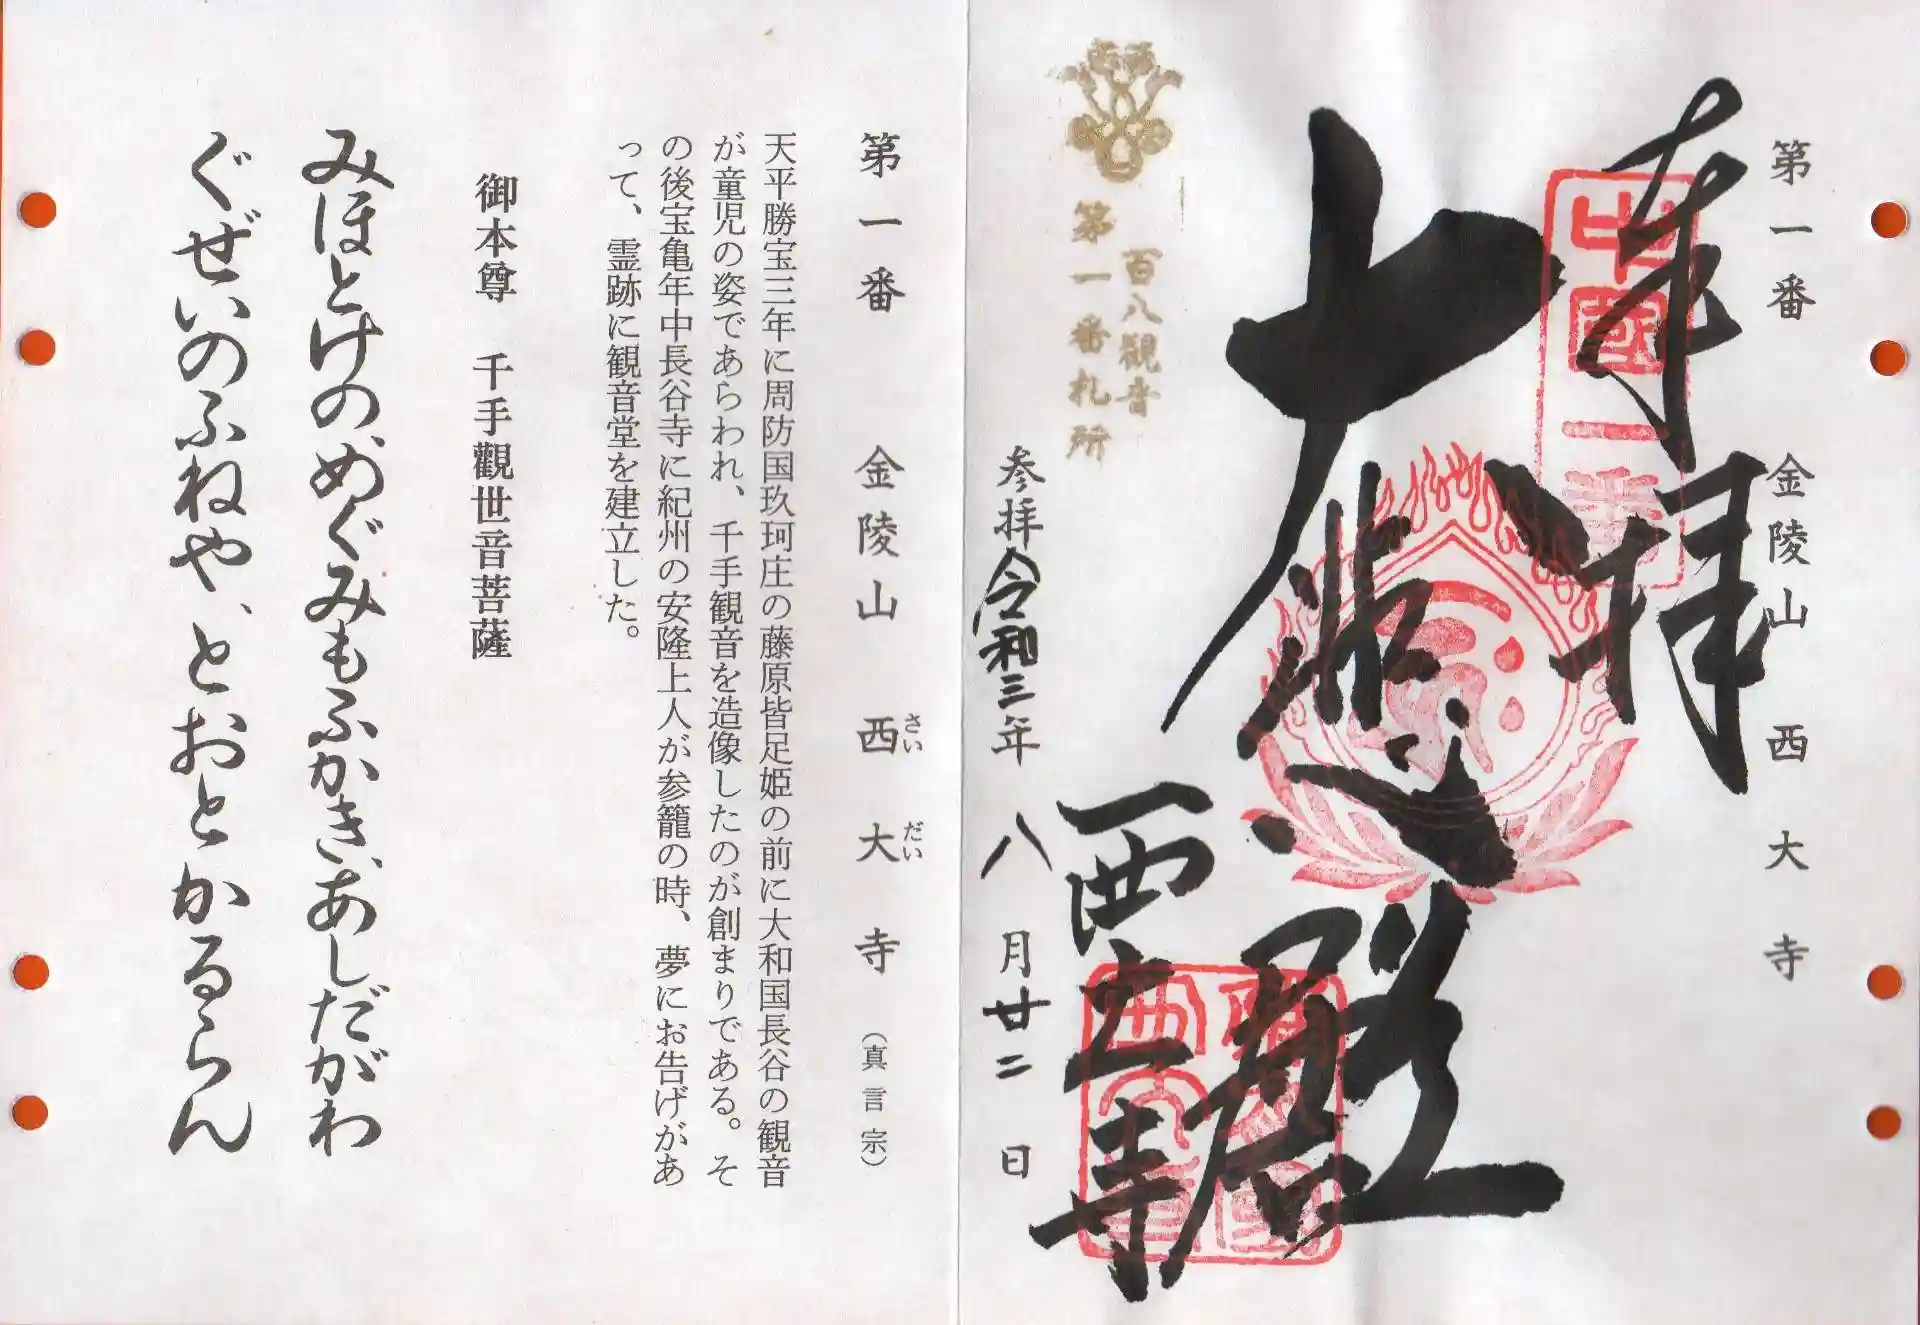 第一番　金陵山　西大寺
奉拝
中國一番
大悲殿
西大寺
百八観音
第一番札所
参拝令和三年八月廿二日
第一番　金陵山　西大寺（真言宗）
さいだい
天平勝宝三年に周防国玖珂庄の藤原皆足姫の前に大和国長谷の観音
が童児の姿であらわれ、千手観音を造像したのが創まりである。そ
の後宝亀年中長谷寺に紀州の安隆上人が参籠の時、夢にお告げがあ
って、霊跡に観音堂を建立した。
御本尊　千手觀世音菩薩
みほとけの、めぐみもふかき、あしだがわ
ぐぜいのふねや、とおとかるらん